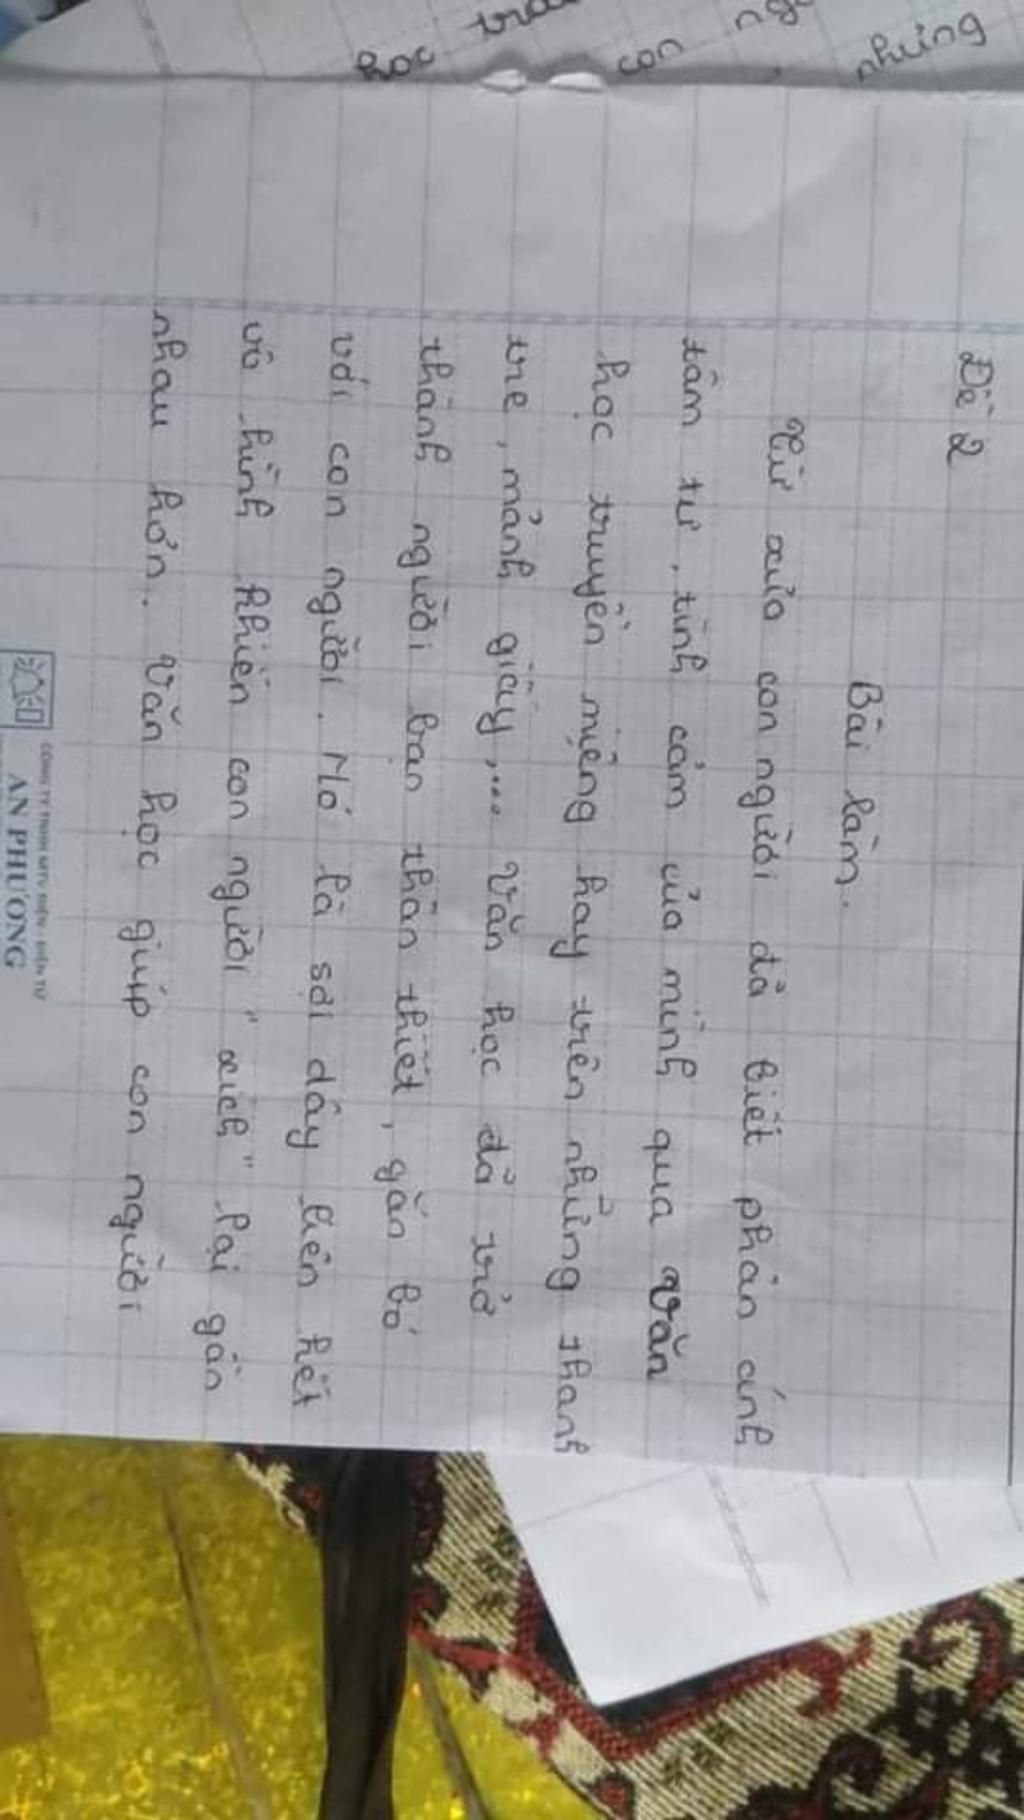 những
Đề 2
Bài làm.
Từ xưa con người đã biết phản ánh
tâm tư, tình cảm của mình qua văn
học truyền miệng hay trên những thanh
tre, mảnh giấy,... Văn học đã trở
thành người bạn thân thiết, gắn bó
với con người. Nó là sợi dây liên kết
vô hình khiến con người "xích" lại gần
nhau hơn. Văn học giúp con người
AN PHƯƠNG